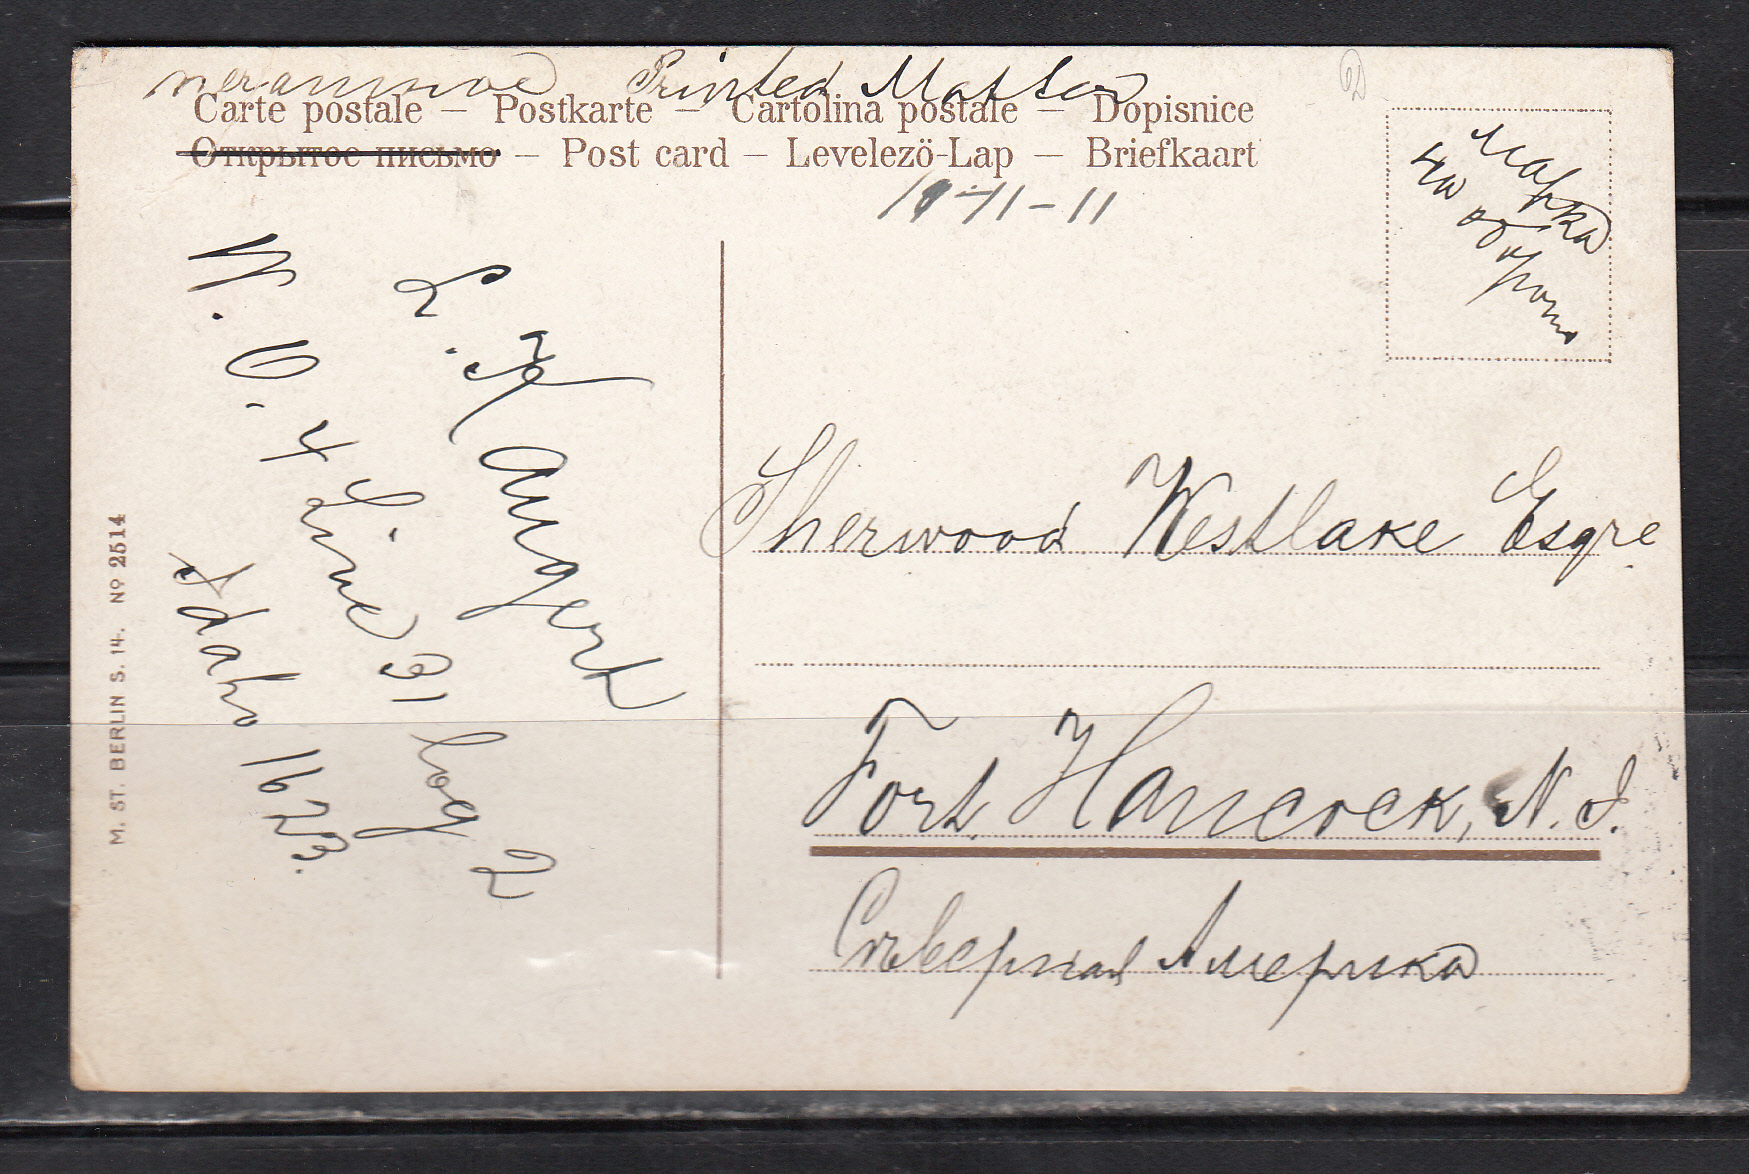 Printed Matter
Carte postale – Postkarte – Cartolina postale – Dopisnice
Открытое письмо – Post card – Levelezö-Lap – Briefkaart
-11-11
Марка
на обороте
L. K Angert
W. O. 4 Line 31 log 2
Idaho 1623.
M. ST. BERLIN S. 14. No 2514
Sherwood Westlake Esqre
Fort Hancock, N. J.
Северная Америка